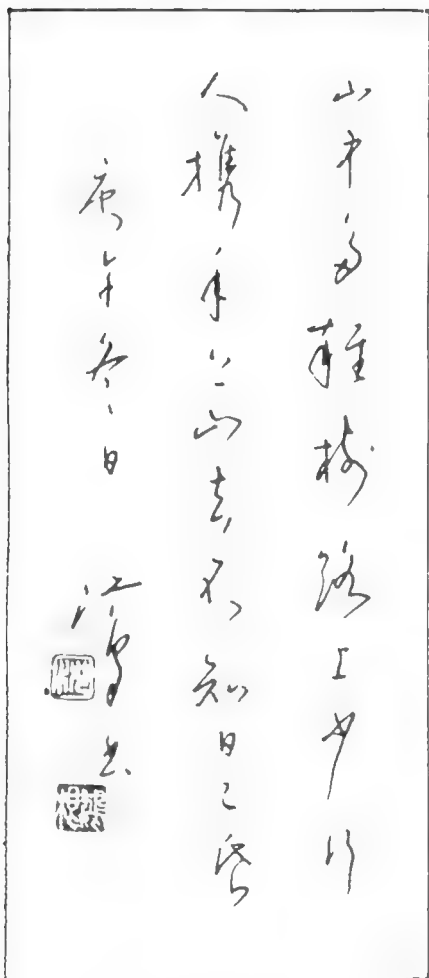 山中多雜樹路上少行
人攜手上山去不知日已昏
庚午冬日 江 書